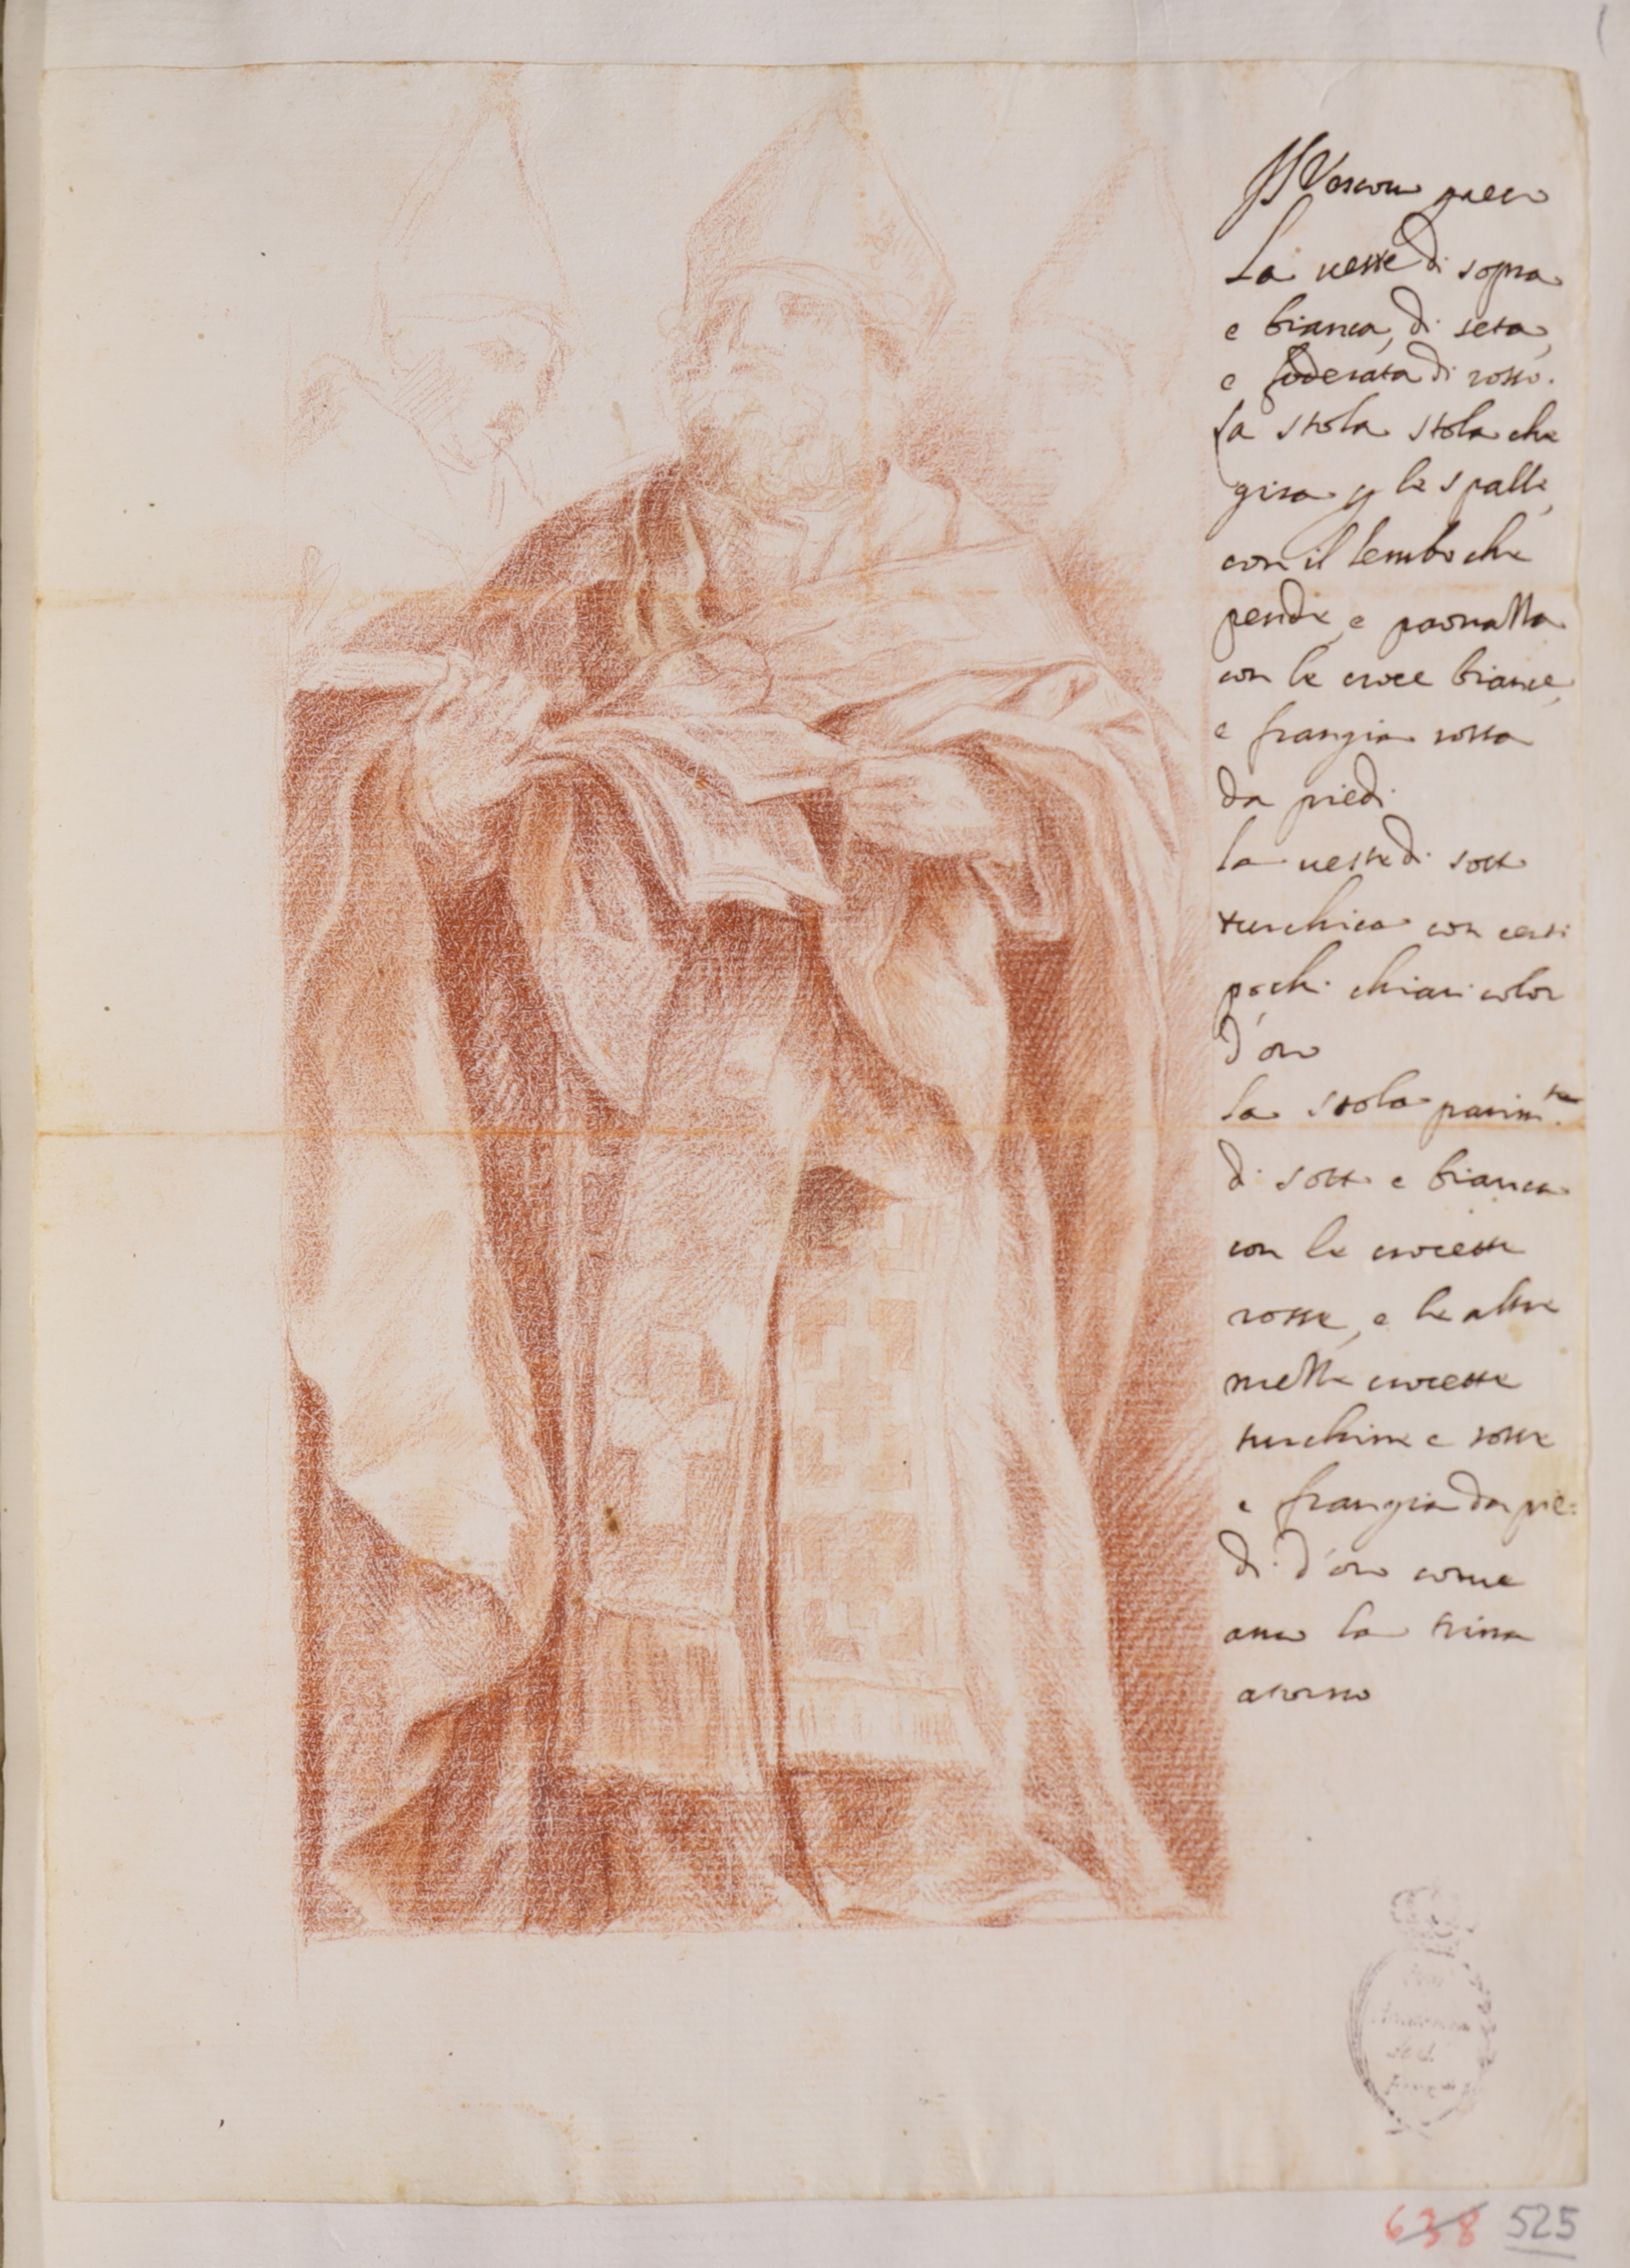 Il Vescovo greco
La veste di sopra
e bianca, di seta,
e foderata di rosso.
la stola stola che
gira p le spalle,
con il lembo che
pende, e paonazza
con le croce biance,
e frangia rossa
da piedi
la veste di sott
turchica con certi
pochi chiari color
d'oro
la stola parim.te
di sott e bianca
con le crocette
rosse, e le altre
mezze crocette
turchine e rosse
e frangia da pie=
di d'oro come
anco la trina
atorno
638 525